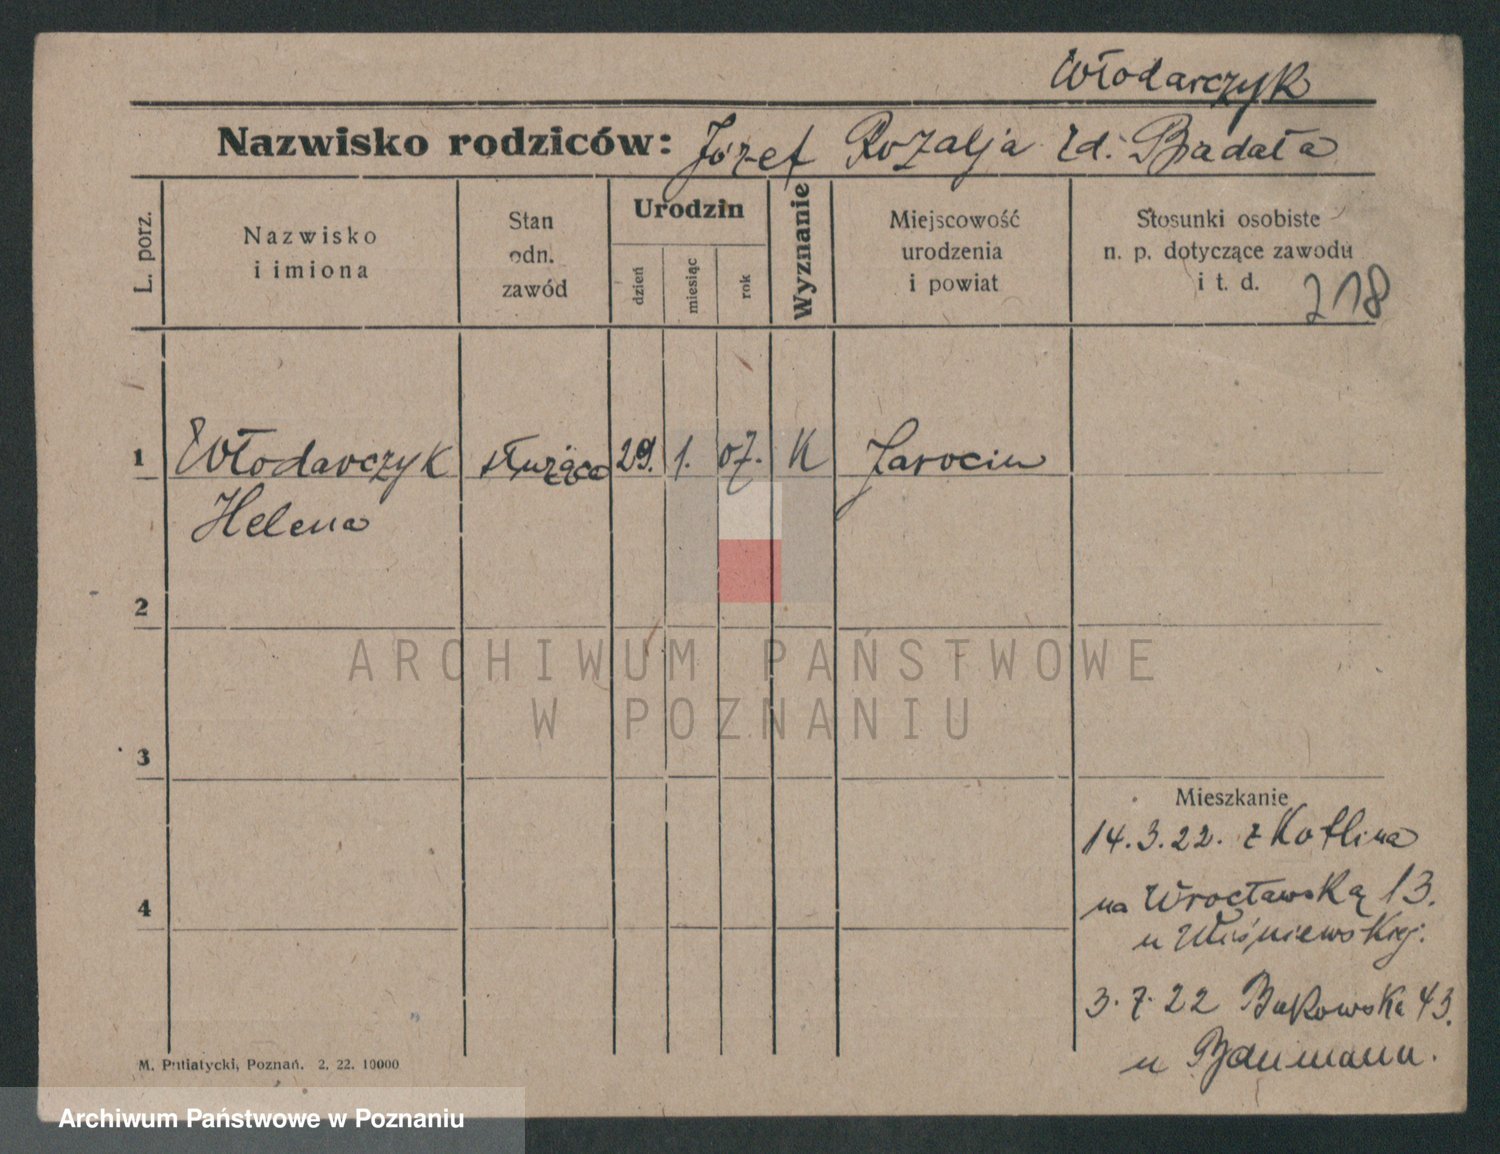 Włodarczyk
Nazwisko rodziców: Józef Rozalja zd. Badała
L. porz.
Nazwisko
i imiona
Stan
odn.
zawód
Urodzin
dzień
miesiąc
rok
Wyznanie
Miejscowość
urodzenia
i powiat
Stosunki osobiste
n. p. dotyczące zawodu
i t. d.
218
1 Włodarczyk służąca 29. 1. 07. K Jarocin
Helena
2
ARCHIWUM PAŃSTWOWE
W POZNANIU
3
Mieszkanie
14.3.22. z Kotlina
na Wrocławską 13.
u Wiśniewskiej.
4
3.7.22 Bukowska 43.
u Baumann.
M. Putiatycki, Poznań. 2, 22. 10000
Archiwum Państwowe w Poznaniu